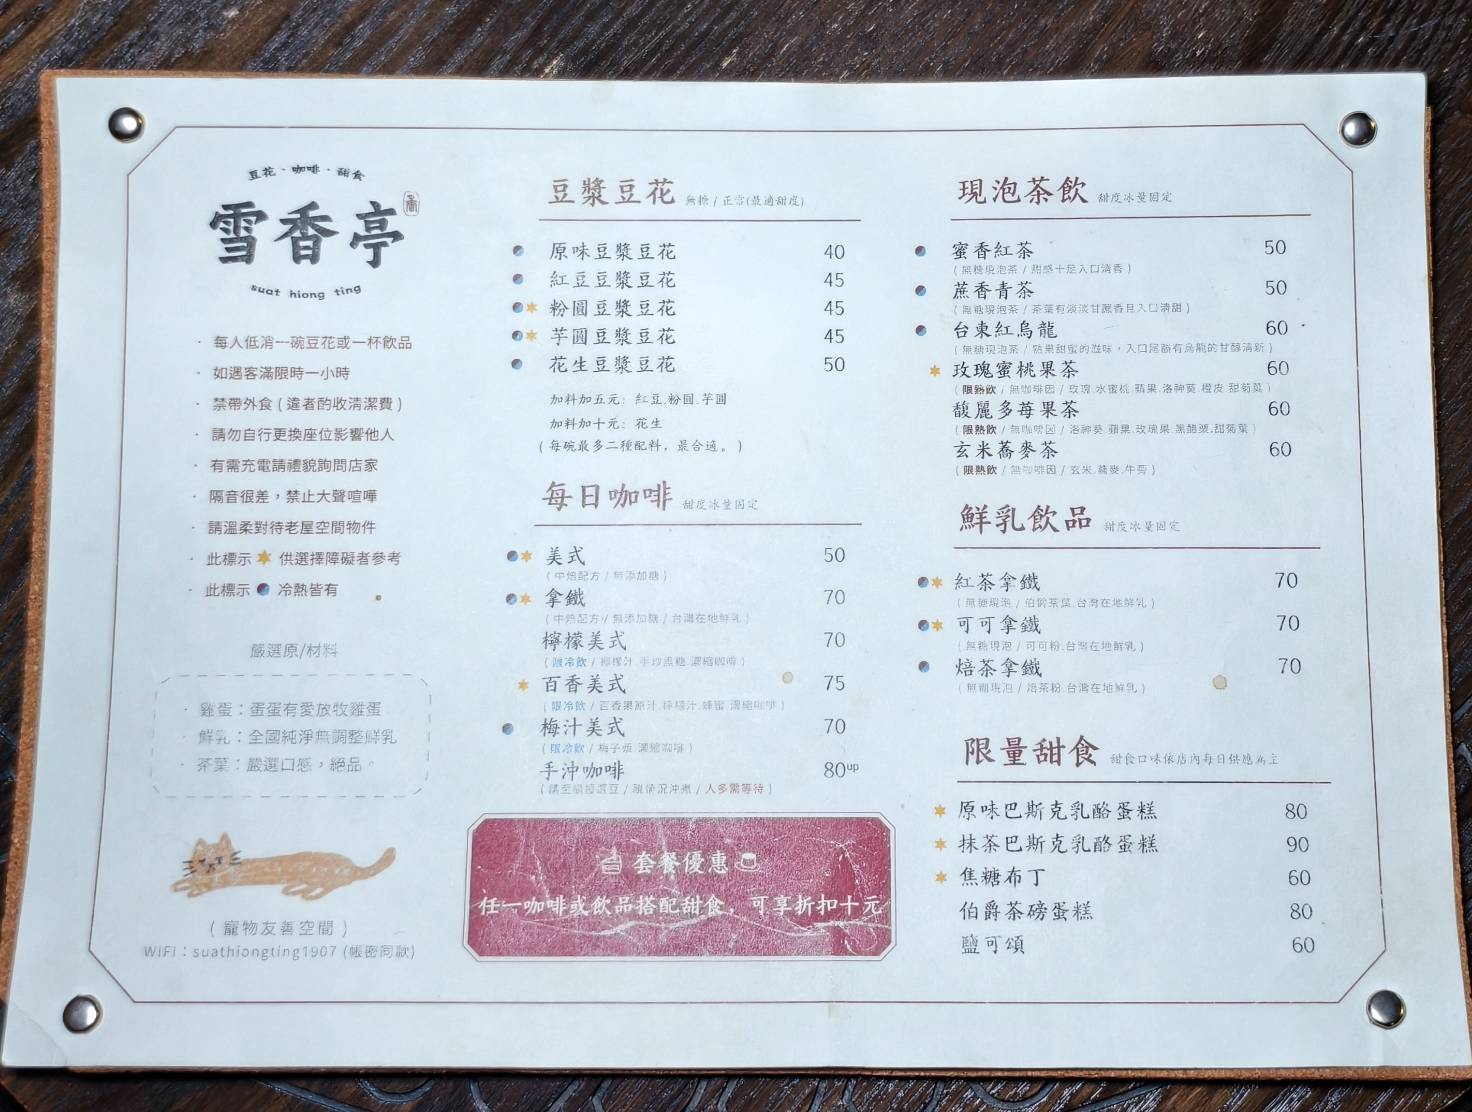 豆花·咖啡·甜食
雪香亭
suat hiong ting
· 每人低消一碗豆花或一杯飲品
· 如遇客滿限時一小時
· 禁帶外食(違者酌收清潔費)
· 請勿自行更換座位影響他人
· 有需充電請禮貌詢問店家
· 隔音很差，禁止大聲喧嘩
· 請溫柔對待老屋空間物件
· 此標示 供選擇障礙者參考
· 此標示 冷熱皆有
嚴選原/材料
· 雞蛋：蛋蛋有愛放牧雞蛋
· 鮮乳：全國純淨無調整鮮乳
· 茶葉：嚴選口感，絕品。
(寵物友善空間)
WiFi：suathiongting1907 (帳密同款)
豆漿豆花 無糖 / 正常(最適甜度)
原味豆漿豆花 40
紅豆豆漿豆花 45
粉圓豆漿豆花 45
芋圓豆漿豆花 45
花生豆漿豆花 50
加料加五元：紅豆.粉圓.芋圓
加料加十元：花生
(每碗最多二種配料，最合適。)
每日咖啡 甜度冰量固定
美式 50
(中焙配方 / 無添加糖)
拿鐵 70
(中焙配方 / 無添加糖 / 台灣在地鮮乳)
檸檬美式 70
(限冷飲 / 檸檬汁.手炒黑糖.濃縮咖啡)
百香美式 75
(限冷飲 / 百香果原汁.檸檬汁.蜂蜜.濃縮咖啡)
梅汁美式 70
(限冷飲 / 梅子漿.濃縮咖啡)
手沖咖啡 80up
(請至吧檯選豆 / 視情況沖煮 / 人多需等待)
套餐優惠
任一咖啡或飲品搭配甜食，可享折扣十元
現泡茶飲 甜度冰量固定
蜜香紅茶 50
(無糖現泡茶 / 甜感十足入口清香)
蔗香青茶 50
(無糖現泡茶 / 茶葉有淡淡甘蔗香且入口清甜)
台東紅烏龍 60
(無糖現泡茶 / 熟果甜蜜的滋味，入口尾韻有烏龍的甘醇清新)
玫瑰蜜桃果茶 60
(限熱飲 / 無咖啡因 / 玫瑰.水蜜桃.蘋果.洛神葵.橙皮.甜菊葉)
馥麗多莓果茶 60
(限熱飲 / 無咖啡因 / 洛神葵.蘋果.玫瑰果.黑醋栗.甜菊葉)
玄米蕎麥茶 60
(限熱飲 / 無咖啡因 / 玄米.蕎麥.牛蒡)
鮮乳飲品 甜度冰量固定
紅茶拿鐵 70
(無糖現泡 / 伯爵茶葉.台灣在地鮮乳)
可可拿鐵 70
(無糖現泡 / 可可粉.台灣在地鮮乳)
焙茶拿鐵 70
(無糖現泡 / 焙茶粉.台灣在地鮮乳)
限量甜食 甜食口味依店內每日供應為主
原味巴斯克乳酪蛋糕 80
抹茶巴斯克乳酪蛋糕 90
焦糖布丁 60
伯爵茶磅蛋糕 80
鹽可頌 60